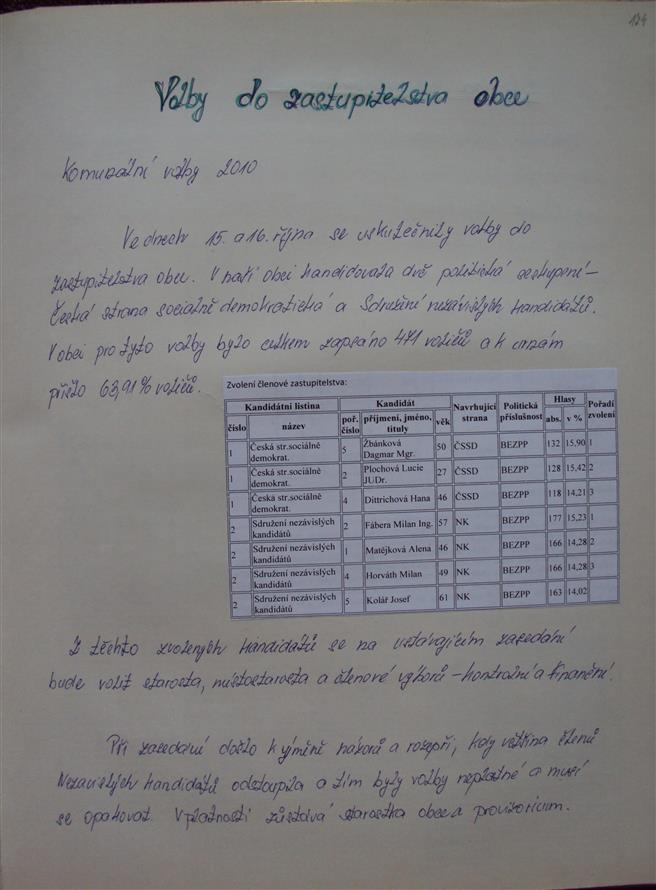 124
Volby do zastupitelstva obce
Komunální volby 2010
Ve dnech 15. a 16. října se uskutečnily volby do
zastupitelstva obce. V naší obci kandidovala dvě politická seskupení –
Česká strana sociálně demokratická a Sdružení nezávislých kandidátů.
V obci pro tyto volby bylo celkem zapsáno 471 voličů a k urnám
přišlo 63,91% voličů.
Zvolení členové zastupitelstva:
Kandidátní listina Kandidát Navrhující strana Politická příslušnost Hlasy Pořadí zvolení
číslo název poř. číslo příjmení, jméno, tituly věk abs. v %
1 Česká str.sociálně demokrat. 5 Žbánková Dagmar Mgr. 50 ČSSD BEZPP 132 15,90 1
1 Česká str.sociálně demokrat. 2 Plochová Lucie JUDr. 27 ČSSD BEZPP 128 15,42 2
1 Česká str.sociálně demokrat. 4 Dittrichová Hana 46 ČSSD BEZPP 118 14,21 3
2 Sdružení nezávislých kandidátů 2 Fábera Milan Ing. 57 NK BEZPP 177 15,23 1
2 Sdružení nezávislých kandidátů 1 Matějková Alena 46 NK BEZPP 166 14,28 2
2 Sdružení nezávislých kandidátů 4 Horváth Milan 49 NK BEZPP 166 14,28 3
2 Sdružení nezávislých kandidátů 5 Kolář Josef 61 NK BEZPP 163 14,02
Z těchto zvolených kandidátů se na ustávajícím zasedání
bude volit starosta, místostarosta a členové výborů – kontrolní a finanční.
Při zasedání došlo k výměně názorů a rozepři, kdy většina členů
Nezávislých kandidátů odstoupila a tím byly volby neplatné a musí
se opakovat. V platnosti zůstává starostka obce a provizorium.